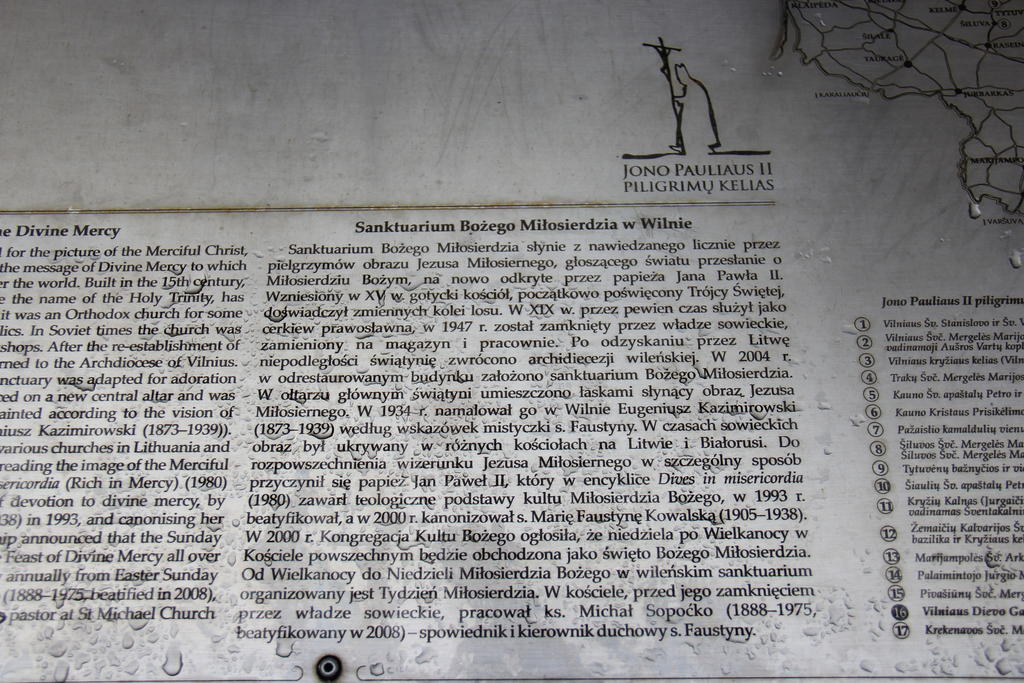 KLAIPĖDA
KELMĖ
TYTUV
ŠILUVA
8
ŠILALĖ
RASEIN
TAURAGĖ
Į KARALIAUČIŲ
JURBARKAS
MARIJAMPOL
Į VARŠUVĄ
JONO PAULIAUS II
PILIGRIMŲ KELIAS
e Divine Mercy
for the picture of the Merciful Christ,
the message of Divine Mercy to which
er the world. Built in the 15th century,
e the name of the Holy Trinity, has
it was an Orthodox church for some
lics. In Soviet times the church was
shops. After the re-establishment of
rned to the Archdiocese of Vilnius.
nctuary was adapted for adoration
ced on a new central altar and was
ainted according to the vision of
niusz Kazimirowski (1873–1939)).
various churches in Lithuania and
reading the image of the Merciful
sericordia (Rich in Mercy) (1980)
devotion to divine mercy, by
38) in 1993, and canonising her
ip announced that the Sunday
Feast of Divine Mercy all over
annually from Easter Sunday
(1888–1975, beatified in 2008),
pastor at St Michael Church
Sanktuarium Bożego Miłosierdzia w Wilnie
Sanktuarium Bożego Miłosierdzia słynie z nawiedzanego licznie przez
pielgrzymów obrazu Jezusa Miłosiernego, głoszącego światu przesłanie o
Miłosierdziu Bożym, na nowo odkryte przez papieża Jana Pawła II.
Wzniesiony w XV w. gotycki kościół, początkowo poświęcony Trójcy Świętej,
doświadczył zmiennych kolei losu. W XIX w. przez pewien czas służył jako
cerkiew prawosławna, w 1947 r. został zamknięty przez władze sowieckie,
zamieniony na magazyn i pracownie. Po odzyskaniu przez Litwę
niepodległości świątynię zwrócono archidiecezji wileńskiej. W 2004 r.
w odrestaurowanym budynku założono sanktuarium Bożego Miłosierdzia.
W ołtarzu głównym świątyni umieszczono łaskami słynący obraz Jezusa
Miłosiernego. W 1934 r. namalował go w Wilnie Eugeniusz Kazimirowski
(1873–1939) według wskazówek mistyczki s. Faustyny. W czasach sowieckich
obraz był ukrywany w różnych kościołach na Litwie i Białorusi. Do
rozpowszechnienia wizerunku Jezusa Miłosiernego w szczególny sposób
przyczynił się papież Jan Paweł II, który w encyklice Dives in misericordia
(1980) zawarł teologiczne podstawy kultu Miłosierdzia Bożego, w 1993 r.
beatyfikował, a w 2000 r. kanonizował s. Marię Faustynę Kowalską (1905–1938).
W 2000 r. Kongregacja Kultu Bożego ogłosiła, że niedziela po Wielkanocy w
Kościele powszechnym będzie obchodzona jako święto Bożego Miłosierdzia.
Od Wielkanocy do Niedzieli Miłosierdzia Bożego w wileńskim sanktuarium
organizowany jest Tydzień Miłosierdzia. W kościele, przed jego zamknięciem
przez władze sowieckie, pracował ks. Michał Sopoćko (1888–1975,
beatyfikowany w 2008) – spowiednik i kierownik duchowy s. Faustyny.
Jono Pauliaus II piligrim
1 Vilniaus Šv. Stanislovo ir Šv. V
2 Vilniaus Švč. Mergelės Marijo
vadinamoji Aušros Vartų kopl
3 Vilniaus kryžiaus kelias (Viln
4 Trakų Švč. Mergelės Marijos
5 Kauno Šv. apaštalų Petro ir
6 Kauno Kristaus Prisikėlimo
7 Pažaislio kamaldulių vienu
8 Šiluvos Švč. Mergelės Ma
Šiluvos Švč. Mergelės Ma
9 Tytuvėnų bažnyčios ir vie
10 Šiaulių Šv. apaštalų Petr
11 Kryžių Kalnas (Jurgaiči
vadinamas Šventakalni
12 Žemaičių Kalvarijos Š
bazilika ir Kryžiaus kel
13 Marijampolės Šv. Ark
14 Palaimintojo Jurgio M
15 Pivašiūnų Švč. Merg
16 Vilniaus Dievo Ga
17 Krekenavos Švč. M